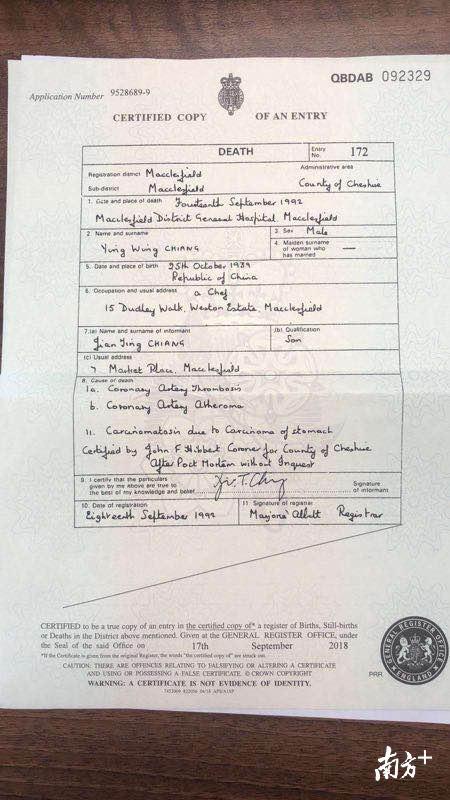 QBDAB 092329
Application Number 9528689-9
CERTIFIED COPY OF AN ENTRY
DEATH Entry No. 172
Registration district Macclesfield Administrative area
Sub-district Macclesfield County of Cheshire
1. Date and place of death Fourteenth September 1992
Macclesfield District General Hospital Macclesfield
2. Name and surname 3. Sex Male
Yung Wung CHIANG 4. Maiden surname of woman who has married —
5. Date and place of birth 25th October 1939
Republic of China
6. Occupation and usual address a Chef
15 Dudley Walk, Weston Estate, Macclesfield
7.(a) Name and surname of informant (b). Qualification
Jian Ting CHIANG Son
(c) Usual address
7, Market Place, Macclesfield
8. Cause of death
1a. Coronary Artery Thrombosis
b. Coronary Artery Atheroma
11. Carcinomatosis due to Carcinoma of stomach
Certified by John F Hibbert Coroner for County of Cheshire
After Post Mortem without Inquest
9. I certify that the particulars
given by me above are true to
the best of my knowledge and belief Signature of informant
10. Date of registration 11. Signature of registrar
Eighteenth September 1992 Marjorie Allott Registrar
CERTIFIED to be a true copy of an entry in the certified copy of* a register of Births, Still-births
or Deaths in the District above mentioned. Given at the GENERAL REGISTER OFFICE, under
the Seal of the said Office on 17th September 2018
*If the Certificate is given from the original Register, the words "the certified copy of" are struck out.
CAUTION: THERE ARE OFFENCES RELATING TO FALSIFYING OR ALTERING A CERTIFICATE
AND USING OR POSSESSING A FALSE CERTIFICATE. © CROWN COPYRIGHT
WARNING: A CERTIFICATE IS NOT EVIDENCE OF IDENTITY.
GENERAL REGISTER OFFICE
ENGLAND
PRR
南方+